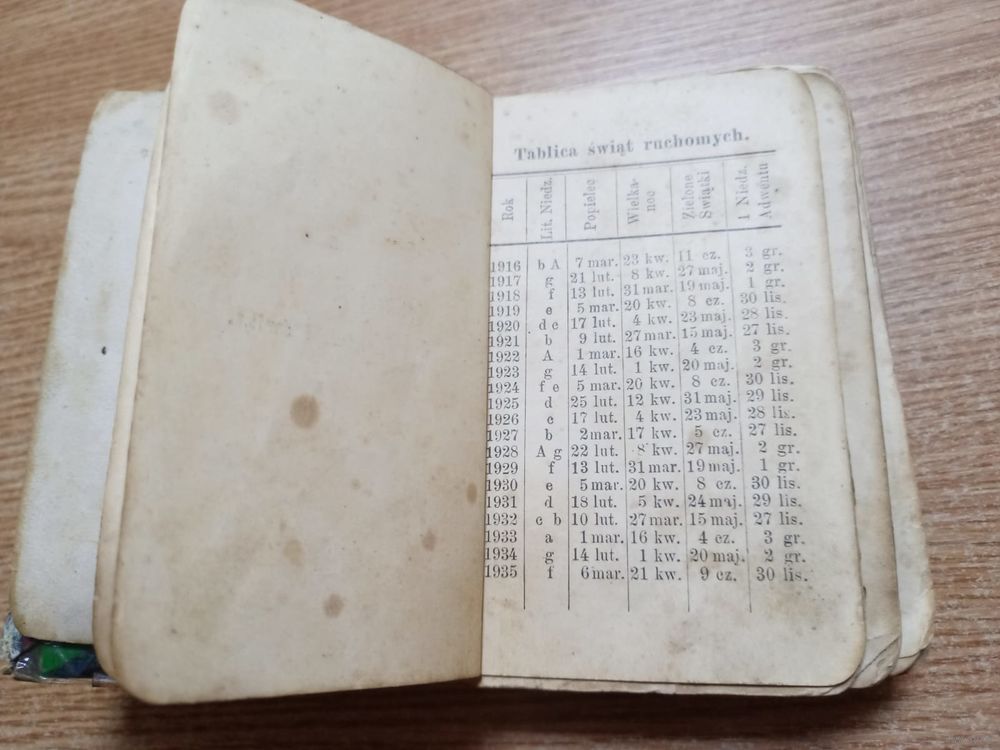 Tablica świąt ruchomych.
Rok Lit. Niedz. Popielec Wielka- Zielone 1 Niedz.
noc Świątki Adwentu
1916 b A 7 mar. 23 kw. 11 cz. 3 gr.
1917 g 21 lut. 8 kw. 27 maj. 2 gr.
1918 f 13 lut. 31 mar. 19 maj. 1 gr.
1919 e 5 mar. 20 kw. 8 cz. 30 lis.
1920 d c 17 lut. 4 kw. 23 maj. 28 lis.
1921 b 9 lut. 27 mar. 15 maj. 27 lis.
1922 A 1 mar. 16 kw. 4 cz. 3 gr.
1923 g 14 lut. 1 kw. 20 maj. 2 gr.
1924 f e 5 mar. 20 kw. 8 cz. 30 lis.
1925 d 25 lut. 12 kw. 31 maj. 29 lis.
1926 c 17 lut. 4 kw. 23 maj. 28 lis.
1927 b 2 mar. 17 kw. 5 cz. 27 lis.
1928 A g 22 lut. 8 kw. 27 maj. 2 gr.
1929 f 13 lut. 31 mar. 19 maj. 1 gr.
1930 e 5 mar. 20 kw. 8 cz. 30 lis.
1931 d 18 lut. 5 kw. 24 maj. 29 lis.
1932 c b 10 lut. 27 mar. 15 maj. 27 lis.
1933 a 1 mar. 16 kw. 4 cz. 3 gr.
1934 g 14 lut. 1 kw. 20 maj. 2 gr.
1935 f 6 mar. 21 kw. 9 cz. 30 lis.